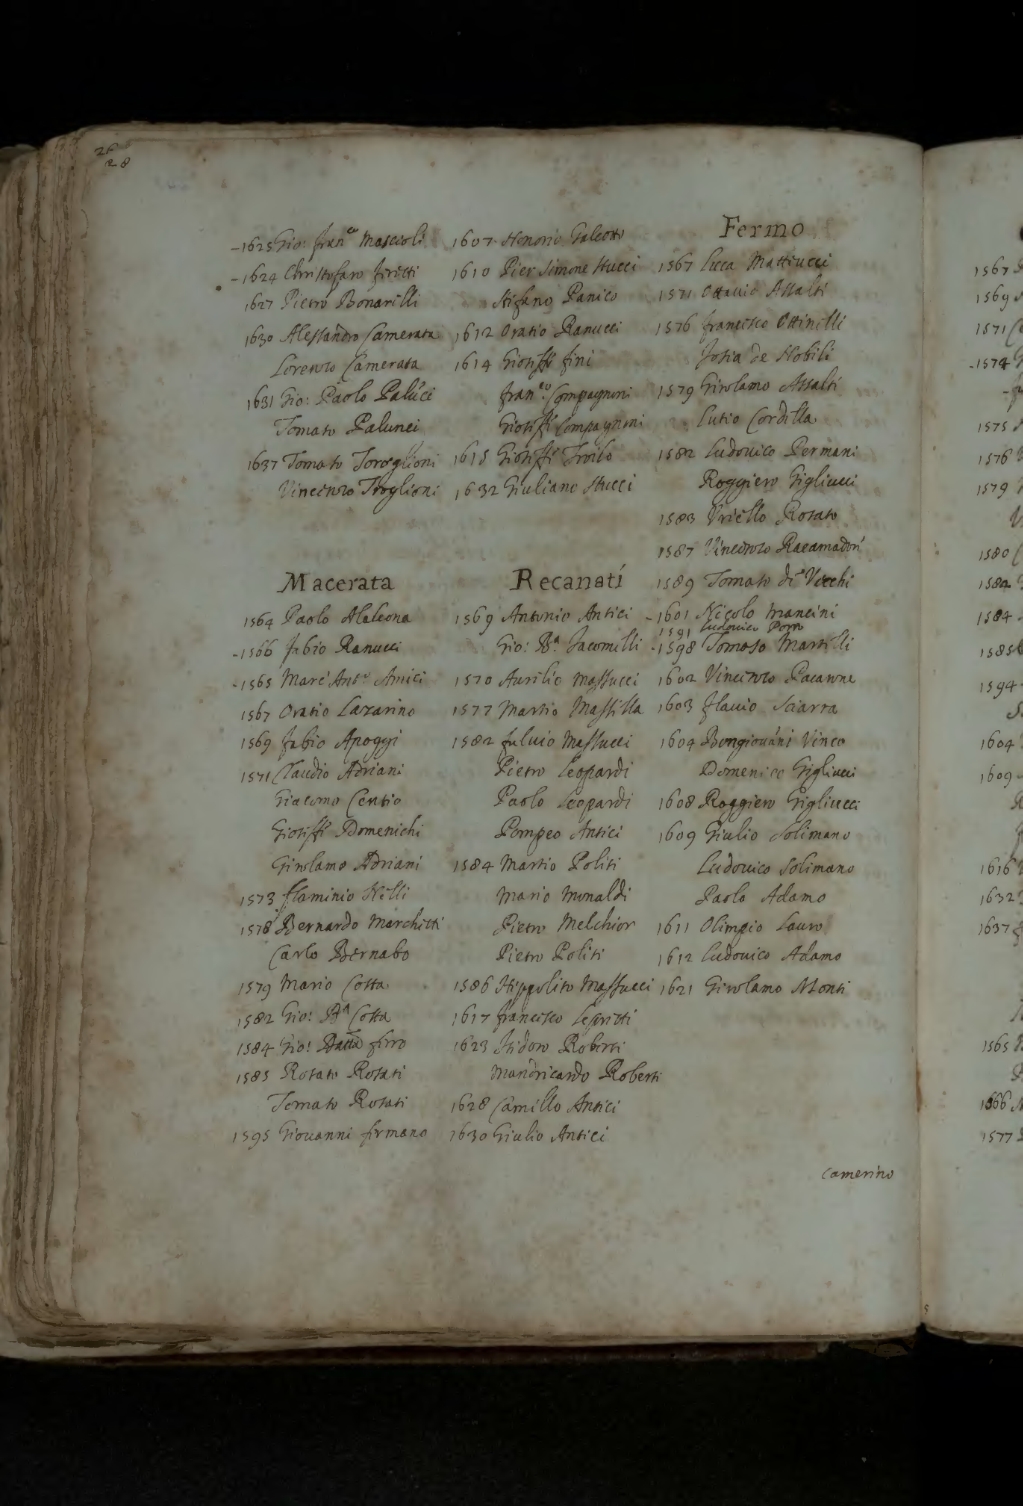 28
-1625 Gio: Fran.co Mascioli
-1624 Christofaro Feretti
1627 Pietro Bonarelli
1630 Alessandro Camerata
Lorenzo Camerata
1631 Gio: Paolo Palúci
Tomaso Palunci
1637 Tomaso Torèglioni
Vincenzo Troglioni
1607 Honorio Galeotto
1610 Pier Simone Stucci
Stefano Panico
1612 Oratio Ranucci
1614 Gioseffe Fini
Fran.co Compagnoni
Gioseffe Compagnoni
1615 Gioseffe Troilo
1632 Giuliano Stucci
Fermo
1567 Luca Matteucci
1571 Ottavio Assalti
1576 Francesco Ottinelli
Josia de Nobili
1579 Girolamo Assalti
Lutio Cordella
1582 Ludovico Permani
Roggiero Gigliucci
1583 Vriello Rosato
1587 Vincenzo Racamadori
1589 Tomaso de Vecchi
-1601 Nicolo Mancini
1591 Ludovico Porro
-1598 Tomaso Martelli
1602 Vincenzo Pacarone
1603 Flavio Sciarra
1604 Bongiovãni Vinco
Domenico Gigliucci
1608 Roggiero Gigliucci
1609 Giulio Solimano
Ludovico Solimano
Paolo Adamo
1611 Olimpio Lauro
1612 Ludovico Adamo
1621 Girolamo Monti
Macerata
1564 Paolo Alaleona
-1566 Fabio Ranucci
-1565 Marc'Ant.o Amici
1567 Oratio Lazarino
1569 Fabio Apoggi
1571 Claudio Adriani
Giacomo Centio
Gioseffe Domenichi
Girolamo Adriani
1573 Flaminio Nelli
1578 Bernardo Marchetti
Carlo Bernabo
1579 Mario Costa
1582 Gio: Bta Costa
1584 Gio: Batta Ferro
1585 Rosato Rosati
Tomaso Rosati
1595 Giovanni Fermano
Recanati
1569 Antonio Antici
Gio: B.a Jacomelli
1570 Aurilio Massucci
1577 Martio Massilla
1582 Fulvio Massucci
Pietro Leopardi
Paolo Leopardi
Pompeo Antici
1584 Martio Politi
Mario Monaldi
Pietro Melchior
Pietro Politi
1586 Hippolito Massucci
1617 Francesco Lepretti
1623 Isidoro Roberti
Mandricardo Roberti
1628 Camillo Antici
1630 Giulio Antici
Camerino
1567
1569
1571
-1574
1575
1576
1579
1580
1582
1584
1585
1594
1604
1609
1616
1632
1637
1565
1566
1577